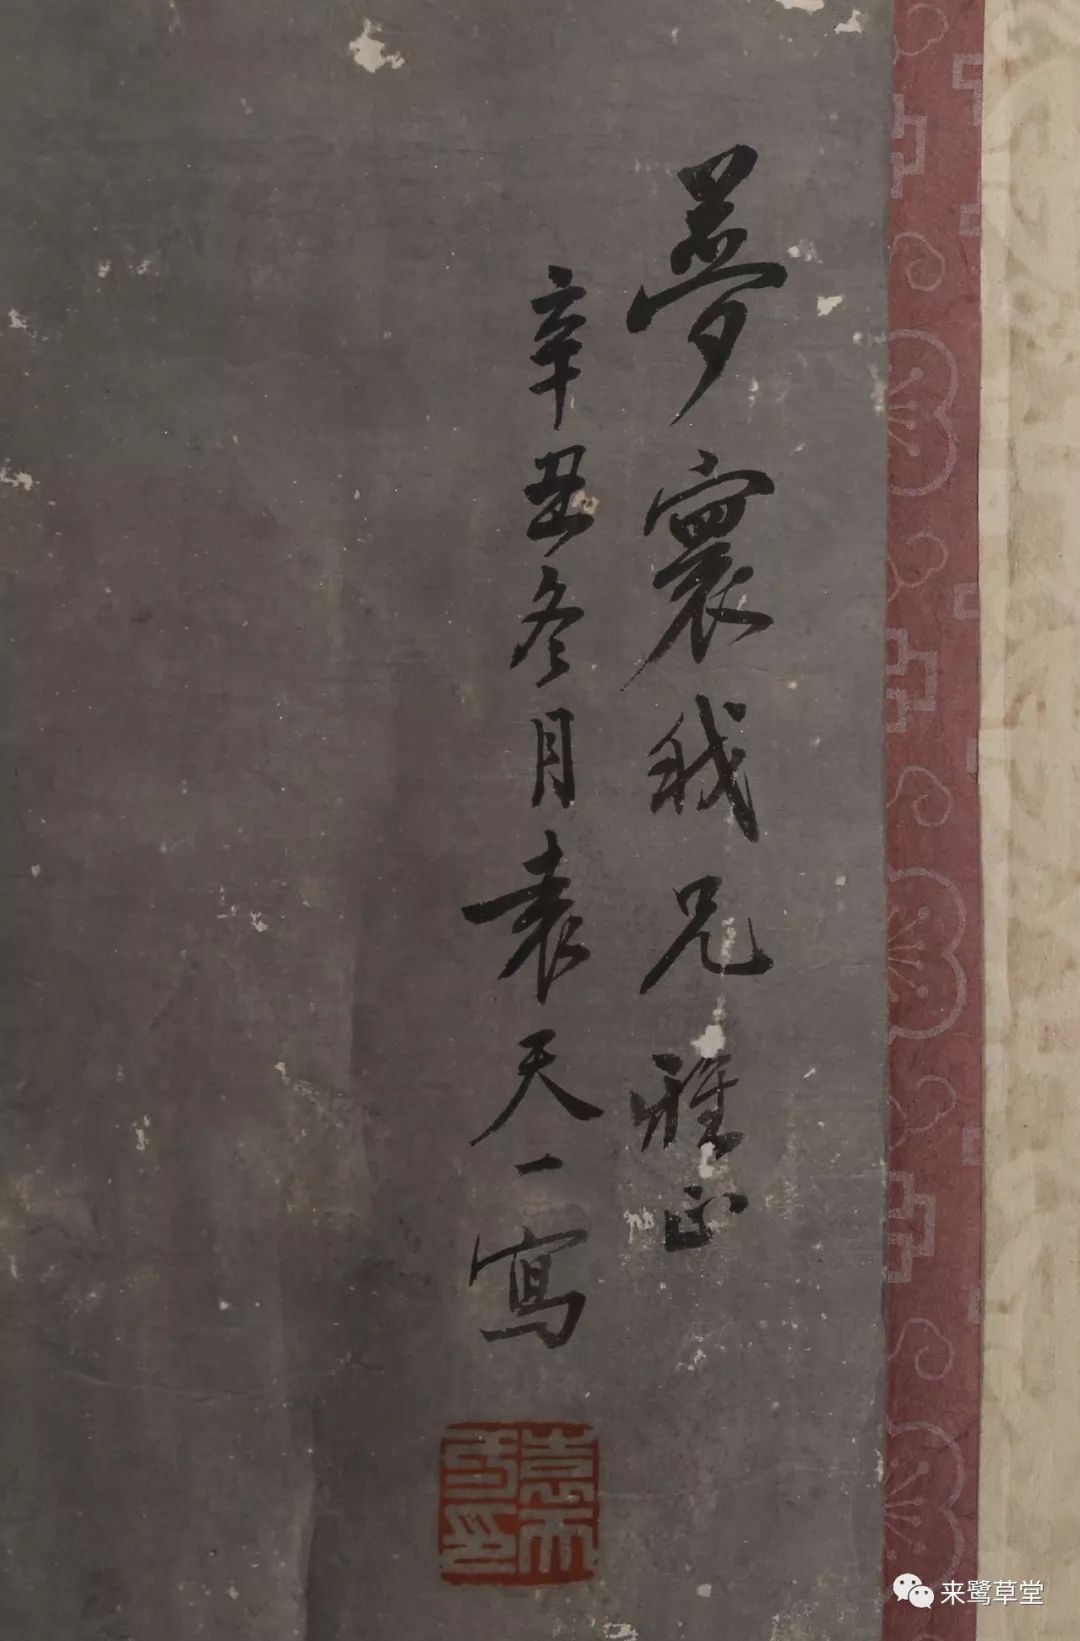 夢寰我兄雅正
辛丑冬月袁天一寫
来鹭草堂